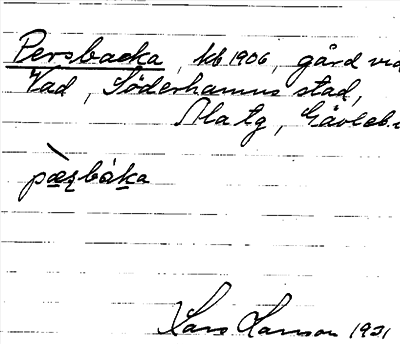 Persbacka, kb 1906, gård vid
Vad, Söderhamns stad,
Ala tg, Gävleb.
pæʂbàka
Lars Hanson 1931